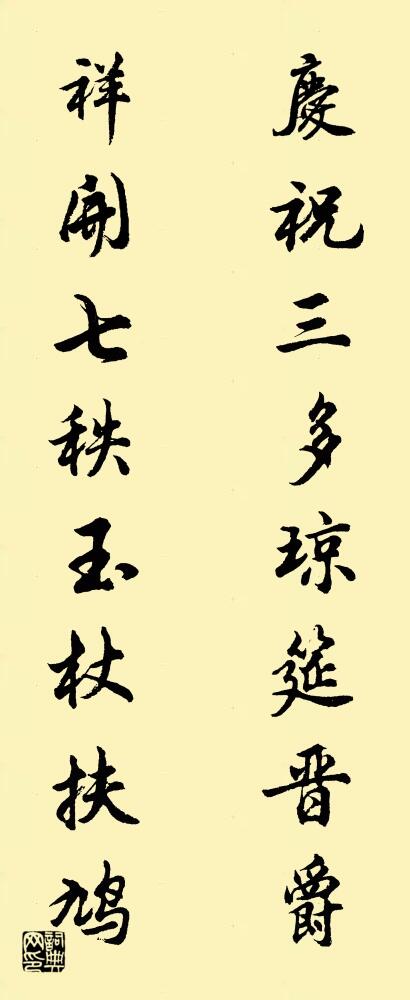 慶祝三多琼筵晋爵
祥開七秩玉杖扶鸠
詞典网印